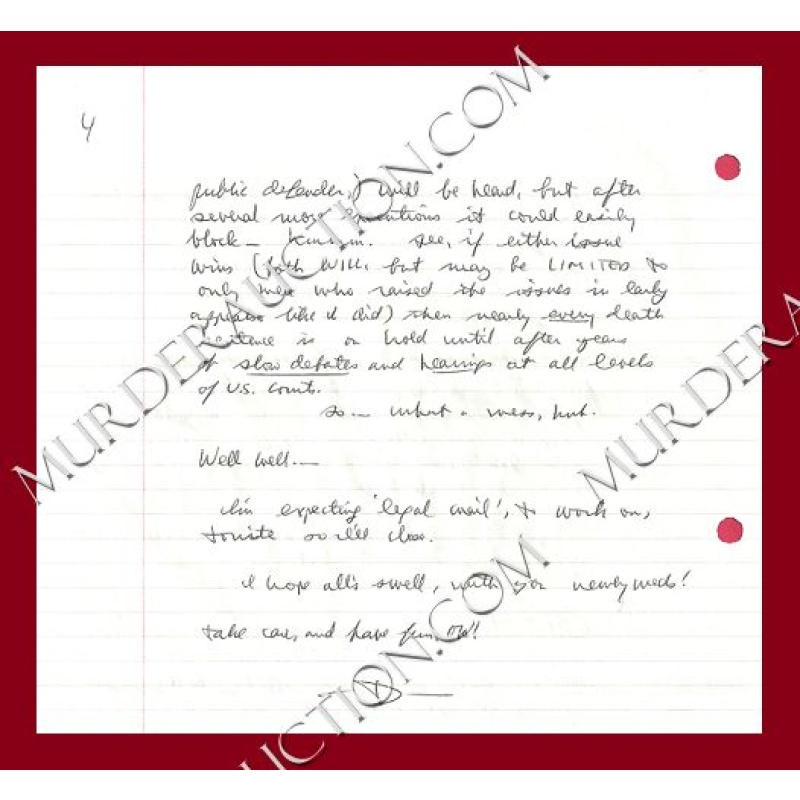 4
public defender,) will be heard, but after
several more executions it could easily
block – hmmm. See, if either issue
wins (both WILL, but may be LIMITED to
only men who raised the issues in early
appeals like I did) then nearly every death
sentence is on hold until after years
of slow debates and hearings at all levels
of U.S. Courts.
so... what a mess, huh.
Well well...
I'm expecting 'legal mail', to work on,
tonite so I'll close.
I hope all's swell, with you newlyweds!
take care, and have fun,
MURDERAUCTION.COM
MURDERA
UCTION.COM